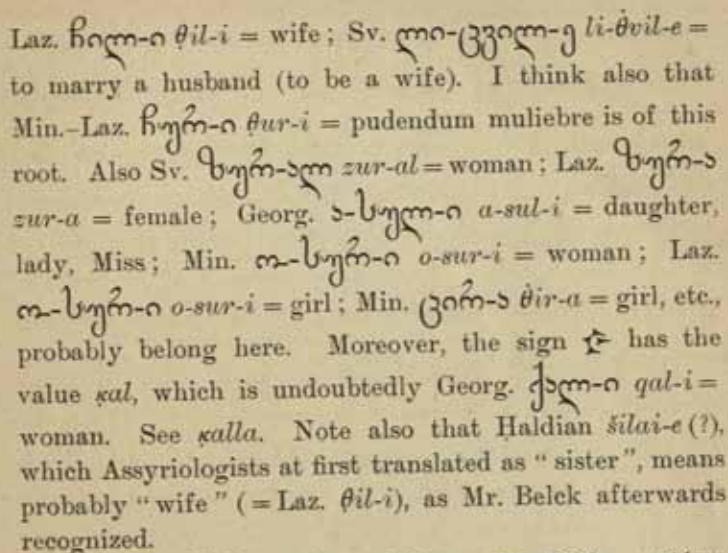 Laz. ჩილ-ი θ̣il-i = wife; Sv. ლი-ცვილ-ე li-θ̇vil-e =
to marry a husband (to be a wife). I think also that
Min.-Laz. ჩურ-ი θ̣ur-i = pudendum muliebre is of this
root. Also Sv. ზურ-ალ zur-al = woman; Laz. ზურ-ა
zur-a = female; Georg. ა-სულ-ი a-sul-i = daughter,
lady, Miss; Min. ო-სურ-ი o-sur-i = woman; Laz.
ო-სურ-ი o-sur-i = girl; Min. ცირ-ა θ̇ir-a = girl, etc.,
probably belong here. Moreover, the sign has the
value ḳal, which is undoubtedly Georg. ქალ-ი qal-i =
woman. See ḳalla. Note also that Ḫaldian šilai-e (?),
which Assyriologists at first translated as “sister”, means
probably “wife” (= Laz. θ̣il-i), as Mr. Belck afterwards
recognized.